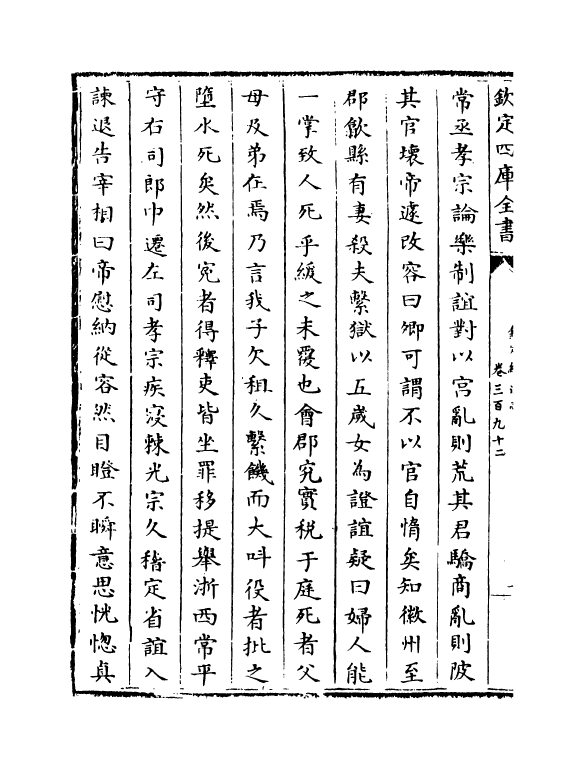 欽定四庫全書
卷三百九十二
常丞孝宗論樂制誼對以宮亂則荒其君驕商亂則陂
其官壞帝遽改容曰卿可謂不以官自惰矣知徽州至
郡歙縣有妻殺夫繫獄以五歲女為證誼疑曰婦人能
一掌致人死乎緩之未覆也會郡究實稅于庭死者父
母及弟在焉乃言我子欠租久繫饑而大呌役者批之
墮水死矣然後寃者得釋吏皆坐罪移提舉浙西常平
守右司郎中遷左司孝宗疾寖棘光宗久稽定省誼入
諫退告宰相曰帝慰納從容然目瞪不瞬意思恍惚真